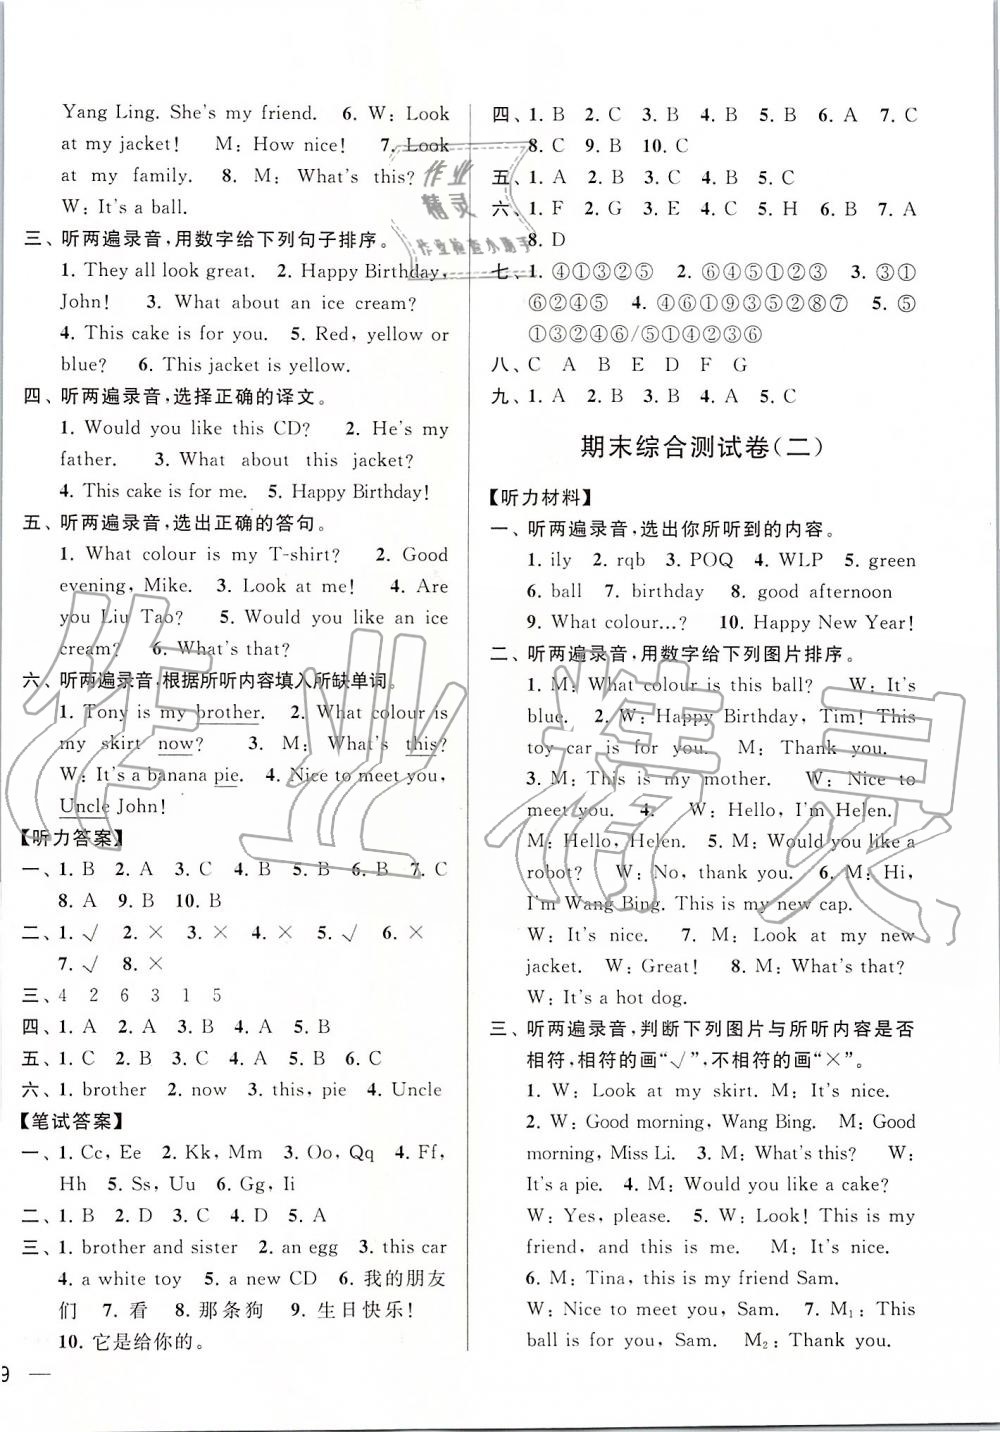 Yang Ling. She's my friend. 6. W: Look
at my jacket! M: How nice! 7. Look
at my family. 8. M: What's this?
W: It's a ball.
三、听两遍录音,用数字给下列句子排序。
1. They all look great. 2. Happy Birthday,
John! 3. What about an ice cream?
4. This cake is for you. 5. Red, yellow or
blue? 6. This jacket is yellow.
四、听两遍录音,选择正确的译文。
1. Would you like this CD? 2. He's my
father. 3. What about this jacket?
4. This cake is for me. 5. Happy Birthday!
五、听两遍录音,选出正确的答句。
1. What colour is my T-shirt? 2. Good
evening, Mike. 3. Look at me! 4. Are
you Liu Tao? 5. Would you like an ice
cream? 6. What's that?
六、听两遍录音,根据所听内容填入所缺单词。
1. Tony is my brother. 2. What colour is
my skirt now? 3. M: What's this?
W: It's a banana pie. 4. Nice to meet you,
Uncle John!
【听力答案】
一、1. B 2. A 3. C 4. B 5. B 6. B 7. C
8. A 9. B 10. B
二、1. √ 2. × 3. × 4. × 5. √ 6. ×
7. √ 8. ×
三、4 2 6 3 1 5
四、1. A 2. A 3. B 4. A 5. B
五、1. C 2. B 3. C 4. A 5. C 6. A
六、1. brother 2. now 3. this, pie 4. Uncle
【笔试答案】
一、1. Cc, Ee 2. Kk, Mm 3. Oo, Qq 4. Ff,
Hh 5. Ss, Uu 6. Gg, Ii
二、1. B 2. D 3. C 4. D 5. A
三、1. brother and sister 2. an egg 3. this car
4. a white toy 5. a new CD 6. 我的朋友
们 7. 看 8. 那条狗 9. 生日快乐!
10. 它是给你的。
9 —
四、1. B 2. C 3. B 4. B 5. B 6. A 7. C
8. C 9. B 10. C
五、1. A 2. B 3. A 4. B 5. C
六、1. F 2. G 3. E 4. C 5. H 6. B 7. A
8. D
七、1. ④①③②⑤ 2. ⑥④⑤①②③ 3. ③①
⑥②④⑤ 4. ④⑥①⑨③⑤②⑧⑦ 5. ⑤
①③②④⑥/⑤①④②③⑥
八、C A B E D F G
九、1. A 2. B 3. B 4. A 5. C
期末综合测试卷(二)
【听力材料】
一、听两遍录音,选出你所听到的内容。
1. ily 2. rqb 3. POQ 4. WLP 5. green
6. ball 7. birthday 8. good afternoon
9. What colour...? 10. Happy New Year!
二、听两遍录音,用数字给下列图片排序。
1. M: What colour is this ball? W: It's
blue. 2. W: Happy Birthday, Tim! This
toy car is for you. M: Thank you.
3. M: This is my mother. W: Nice to
meet you. 4. W: Hello, I'm Helen.
M: Hello, Helen. 5. M: Would you like a
robot? W: No, thank you. 6. M: Hi,
I'm Wang Bing. This is my new cap.
W: It's nice. 7. M: Look at my new
jacket. W: Great! 8. M: What's that?
W: It's a hot dog.
三、听两遍录音,判断下列图片与所听内容是否
相符,相符的画“√”,不相符的画“×”。
1. W: Look at my skirt. M: It's nice.
2. W: Good morning, Wang Bing. M: Good
morning, Miss Li. 3. M: What's this? W:
It's a pie. 4. M: Would you like a cake?
W: Yes, please. 5. W: Look! This is my
friend, and this is me. M: It's nice.
6. M: Tina, this is my friend Sam.
W: Nice to meet you, Sam. 7. M₁: This
ball is for you, Sam. M₂: Thank you.
作业
精灵
作业检查小助手
作业精灵